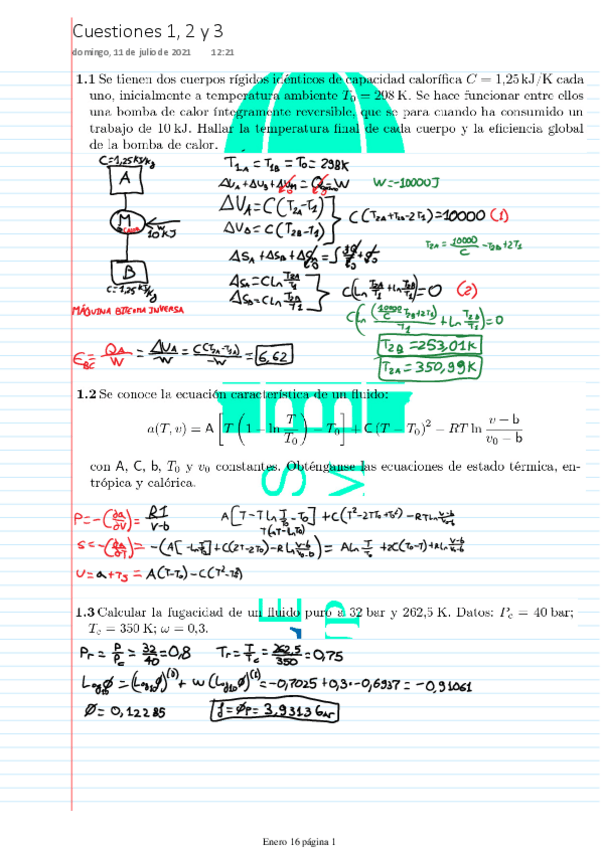 Cuestiones 1, 2 y 3
domingo, 11 de julio de 2021 12:21
1.1 Se tienen dos cuerpos rígidos idénticos de capacidad calorífica C = 1,25 kJ/K cada
uno, inicialmente a temperatura ambiente T₀ = 298 K. Se hace funcionar entre ellos
una bomba de calor íntegramente reversible, que se para cuando ha consumido un
trabajo de 10 kJ. Hallar la temperatura final de cada cuerpo y la eficiencia global
de la bomba de calor.
C=1,25kJ/kg
A
M
10 kJ
B
C=1,25 kJ/kg
MÁQUINA BITERMA INVERSA
T1A = T1B = T0 = 298K
ΔUA+ΔUB+ΔUM = Q-W W=-10000J
ΔUA=C(T2A-T1)
ΔUB=C(T2B-T1)
C(T2A+T2B-2T1)=10000 (1)
T2A = 10000/C - T2B+2T1
ΔSA=C Ln T2A/T1
ΔSB=C Ln T2B/T1
C(Ln T2A/T1 + Ln T2B/T1)=0 (2)
T2B = 253,01K
T2A = 350,99K
QA/W = ΔUA/-W = C(T2A-T1)/-W = 6,62
1.2 Se conoce la ecuación característica de un fluido:
a(T, v) = A [T (1 − ln T/T₀) − T₀] + C (T − T₀)² − RT ln (v − b)/(v₀ − b)
con A, C, b, T₀ y v₀ constantes. Obténganse las ecuaciones de estado térmica, en-
trópica y calórica.
P=-(∂a/∂v)= RT/v-b
A[T-T Ln T/T0 -T0] +C(T²-2TT0+T0²) -RT Ln v-b/v0-b
S=-(∂a/∂T)= -(A[-Ln T/T0]+C(2T-2T0)-R Ln v-b/v0-b)= A Ln T/T0 +2C(T0-T)+R Ln v-b/v0-b
U=a+Ts = A(T-T0)-C(T²-T0²)
1.3 Calcular la fugacidad de un fluido puro a 32 bar y 262,5 K. Datos: P_c = 40 bar;
T_c = 350 K; ω = 0,3.
Pr = P/Pc = 32/40 =0,8 Tr = T/Tc = 262,5/350 =0,75
Log10 ϕ = (Log10 ϕ)⁽⁰⁾ + w (Log10 ϕ)⁽¹⁾ = -0,7025 +0,3·-0,6937 = -0,91061
ϕ = 0,12285 f = ϕP = 3,9313 bar
Enero 16 página 1